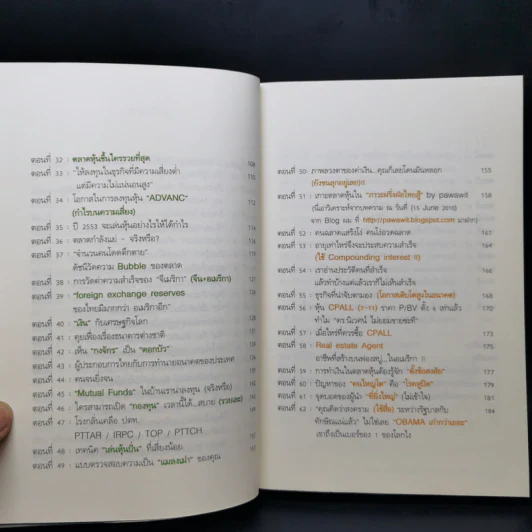 ตอนที่ 32 : ตลาดหุ้นขึ้นใครรวยที่สุด 108
ตอนที่ 33 : "ให้ลงทุนในธุรกิจที่มีความเสี่ยงต่ำ 110
แต่มีความไม่แน่นอนสูง"
ตอนที่ 34 : โอกาสในการลงทุนหุ้น "ADVANC" 112
(กำไรบนความเสี่ยง)
ตอนที่ 35 : ปี 2553 จะเล่นหุ้นอย่างไรให้ได้กำไร
ตอนที่ 36 : ตลาดกำลังแย่ - จริงหรือ?
ตอนที่ 37 : "จำนวนคนโดดตึกตาย"
ดัชนีวัดความ Bubble ของตลาด
ตอนที่ 38 : การวัดค่าความสำเร็จของ "จีเมริกา" (จีน+อเมริกา)
ตอนที่ 39 : "foreign exchange reserves
ของไทยมีมากกว่า อเมริกาอีก"
ตอนที่ 40 : "เงิน" กับเศรษฐกิจโลก
ตอนที่ 41 : คุยเฟื่องเรื่องธนาคารต่างชาติ
ตอนที่ 42 : เห็น "กงจักร" เป็น "ดอกบัว"
ตอนที่ 43 : ผู้ประกอบการไทยกับการทำนายอนาคตของประเทศ
ตอนที่ 44 : คนจนยิ่งจน
ตอนที่ 45 : "Mutual Funds" ในบ้านเราน่าลงทุน (จริงหรือ)
ตอนที่ 46 : ใครสามารถเปิด "กองทุน" เวลานี้ได้...สบาย (รวยเละ)
ตอนที่ 47 : โรงกลั่นเครือ ปตท.
PTTAR / IRPC / TOP / PTTCH
ตอนที่ 48 : เทคนิค "เล่นหุ้นปั่น" ที่เสี่ยงน้อย
ตอนที่ 49 : แบบตรวจสอบความเป็น "แมลงเม่า" ของคุณ
ตอนที่ 50 : ภาพลวงตาของค่าเงิน...คุณก็เลยโดนมันหลอก 155
(ยังขนลุกอยู่เลย)!!
ตอนที่ 51 : เกาะตลาดหุ้นใน "ภาวะฝรั่งผีตไทยสู้" by pawawit 158
(นี่เอาวิเคราะห์จากบทความ ณ วันที่ (15 June 2010)
จาก Blog ผม ที่ http://pawawit.blogspot.com มาฝาก)
ตอนที่ 52 : คนฉลาดแสร้งโง่ คนโง่อวดฉลาด 162
ตอนที่ 53 : อายุเท่าไหร่จึงจะประสบความสำเร็จ 164
(ใช้ Compounding interest !!)
ตอนที่ 54 : เราอ่านประวัติคนที่สำเร็จ
แล้วทำบ้างแต่แล้วเราก็ไม่เห็นสำเร็จ
ตอนที่ 55 : ธุรกิจที่น่าจับตามอง (โอกาสเติบโตสูงในอนาคต) 168
ตอนที่ 56 : หุ้น CPALL (7-11) ราคา P/BV ตั้ง 4 เท่าแล้ว
ทำไม "ดร.นิเวศน์ ไม่ยอมขายซะที"
ตอนที่ 57 : เมื่อไหร่ที่ควรซื้อ CPALL 173
ตอนที่ 58 : Real estate Agent 175
อาชีพที่สร้างเบนท่องสบู่...ในอเมริกา !!
ตอนที่ 59 : การทำเงินในตลาดหุ้นต้องรู้จัก "ตั้งข้อสงสัย" 177
ตอนที่ 60 : ปัญหาของ "คนใหญ่โต" คือ "โรคหูบิด" 179
ตอนที่ 61 : จุดบอดของผู้นำ "ขี้ยิ่งใหญ่" (ไม่เข้าใจ)
ตอนที่ 62 : "คุณคิดว่าสงคราม (ใช้สื่อ) ระหว่างรัฐบาลกับ 184
ทักษิณแน่แล้ว" ไม่ใช่เลย "OBAMA เก่ากว่าเยอะ"
เขาถึงเป็นเบอร์ของ 1 ของโลกไง